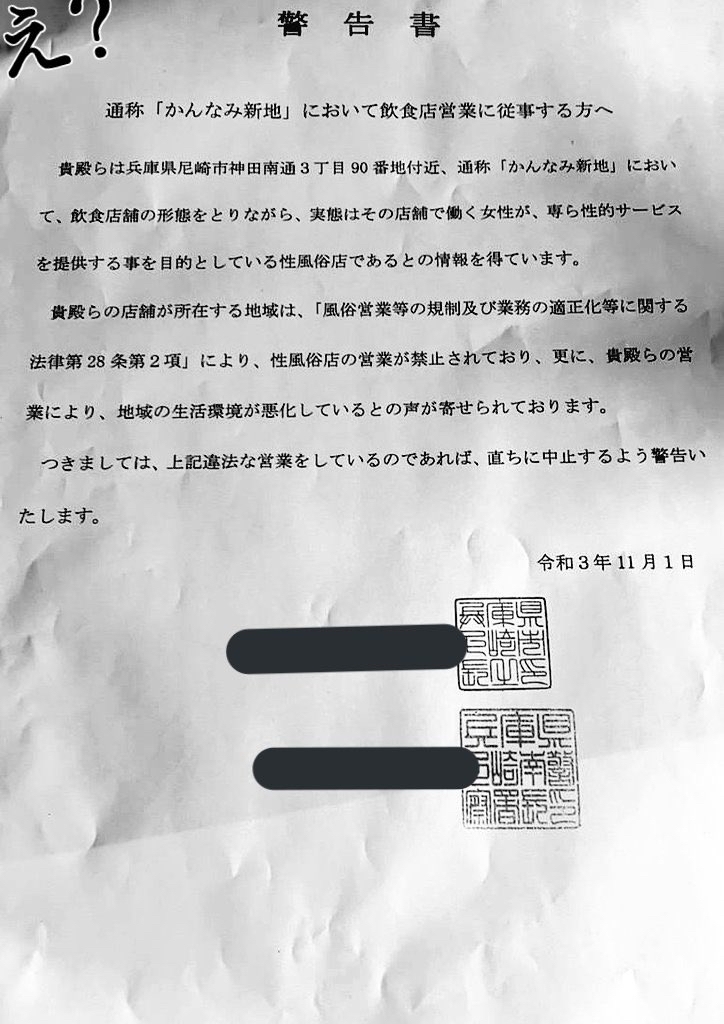 え?
警告書
通称「かんなみ新地」において飲食店営業に従事する方へ
貴殿らは兵庫県尼崎市神田南通3丁目90番地付近、通称「かんなみ新地」におい
て、飲食店舗の形態をとりながら、実態はその店舗で働く女性が、専ら性的サービス
を提供する事を目的としている性風俗店であるとの情報を得ています。
貴殿らの店舗が所在する地域は、「風俗営業等の規制及び業務の適正化等に関する
法律第28条第2項」により、性風俗店の営業が禁止されており、更に、貴殿らの営
業により、地域の生活環境が悪化しているとの声が寄せられております。
つきましては、上記違法な営業をしているのであれば、直ちに中止するよう警告い
たします。
令和3年11月1日